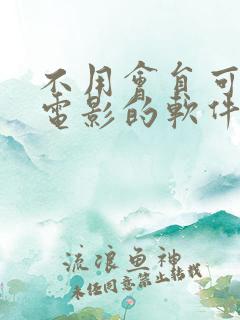 不用會員可
電影的軟件
流浪鱼神
未经同意禁止转载